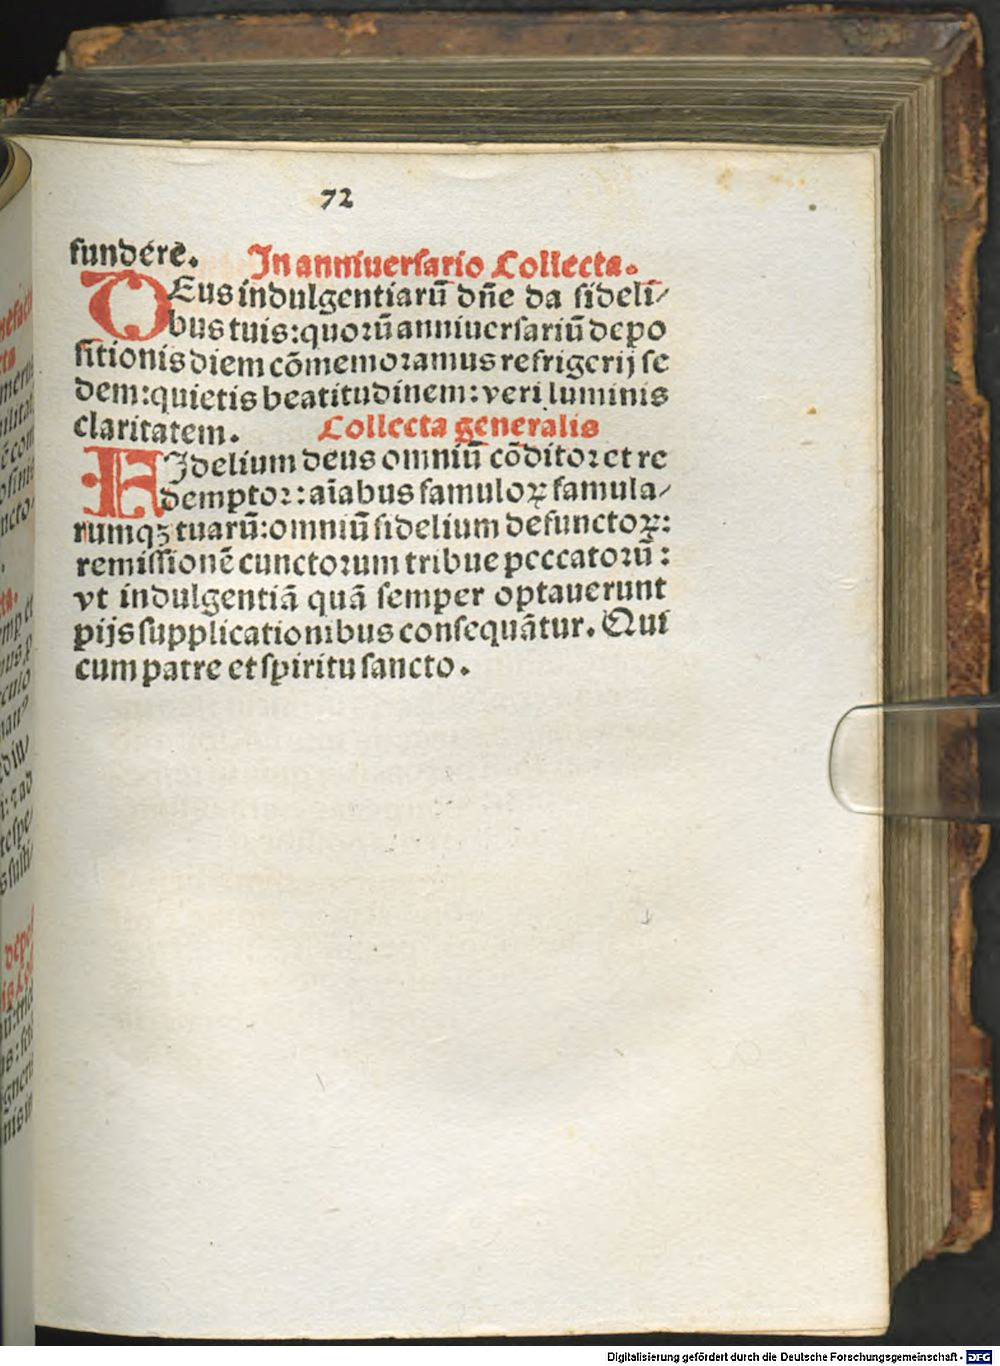 72
fundere. In anniuersario Collecta.
DEus indulgentiarū dn̄e da fideli/
bus tuis: quorū anniuersariū depo
sitionis diem cōmemoramus refrigerij se
dem: quietis beatitudinem: veri luminis
claritatem. Collecta generalis
FIdelium deus omniū cōditor et re
demptor: aīabus famuloꝝ famula/
rumqꝫ tuarū: omniū fidelium defunctoꝝ:
remissionē cunctorum tribue peccatorū:
vt indulgentiā quā semper optauerunt
pijs supplicationibus consequātur. Qui
cum patre et spiritu sancto.
Digitalisierung gefördert durch die Deutsche Forschungsgemeinschaft - DFG